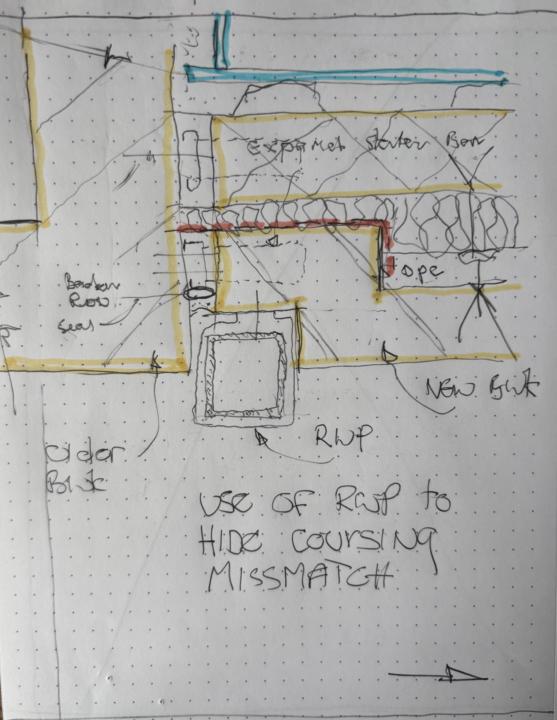 Expamet Starter Bar
Backer
Rod
Seal
ope
New Bwk
Older
Bwk
RWP
USE OF RWP to
HIDE COURSING
MISSMATCH